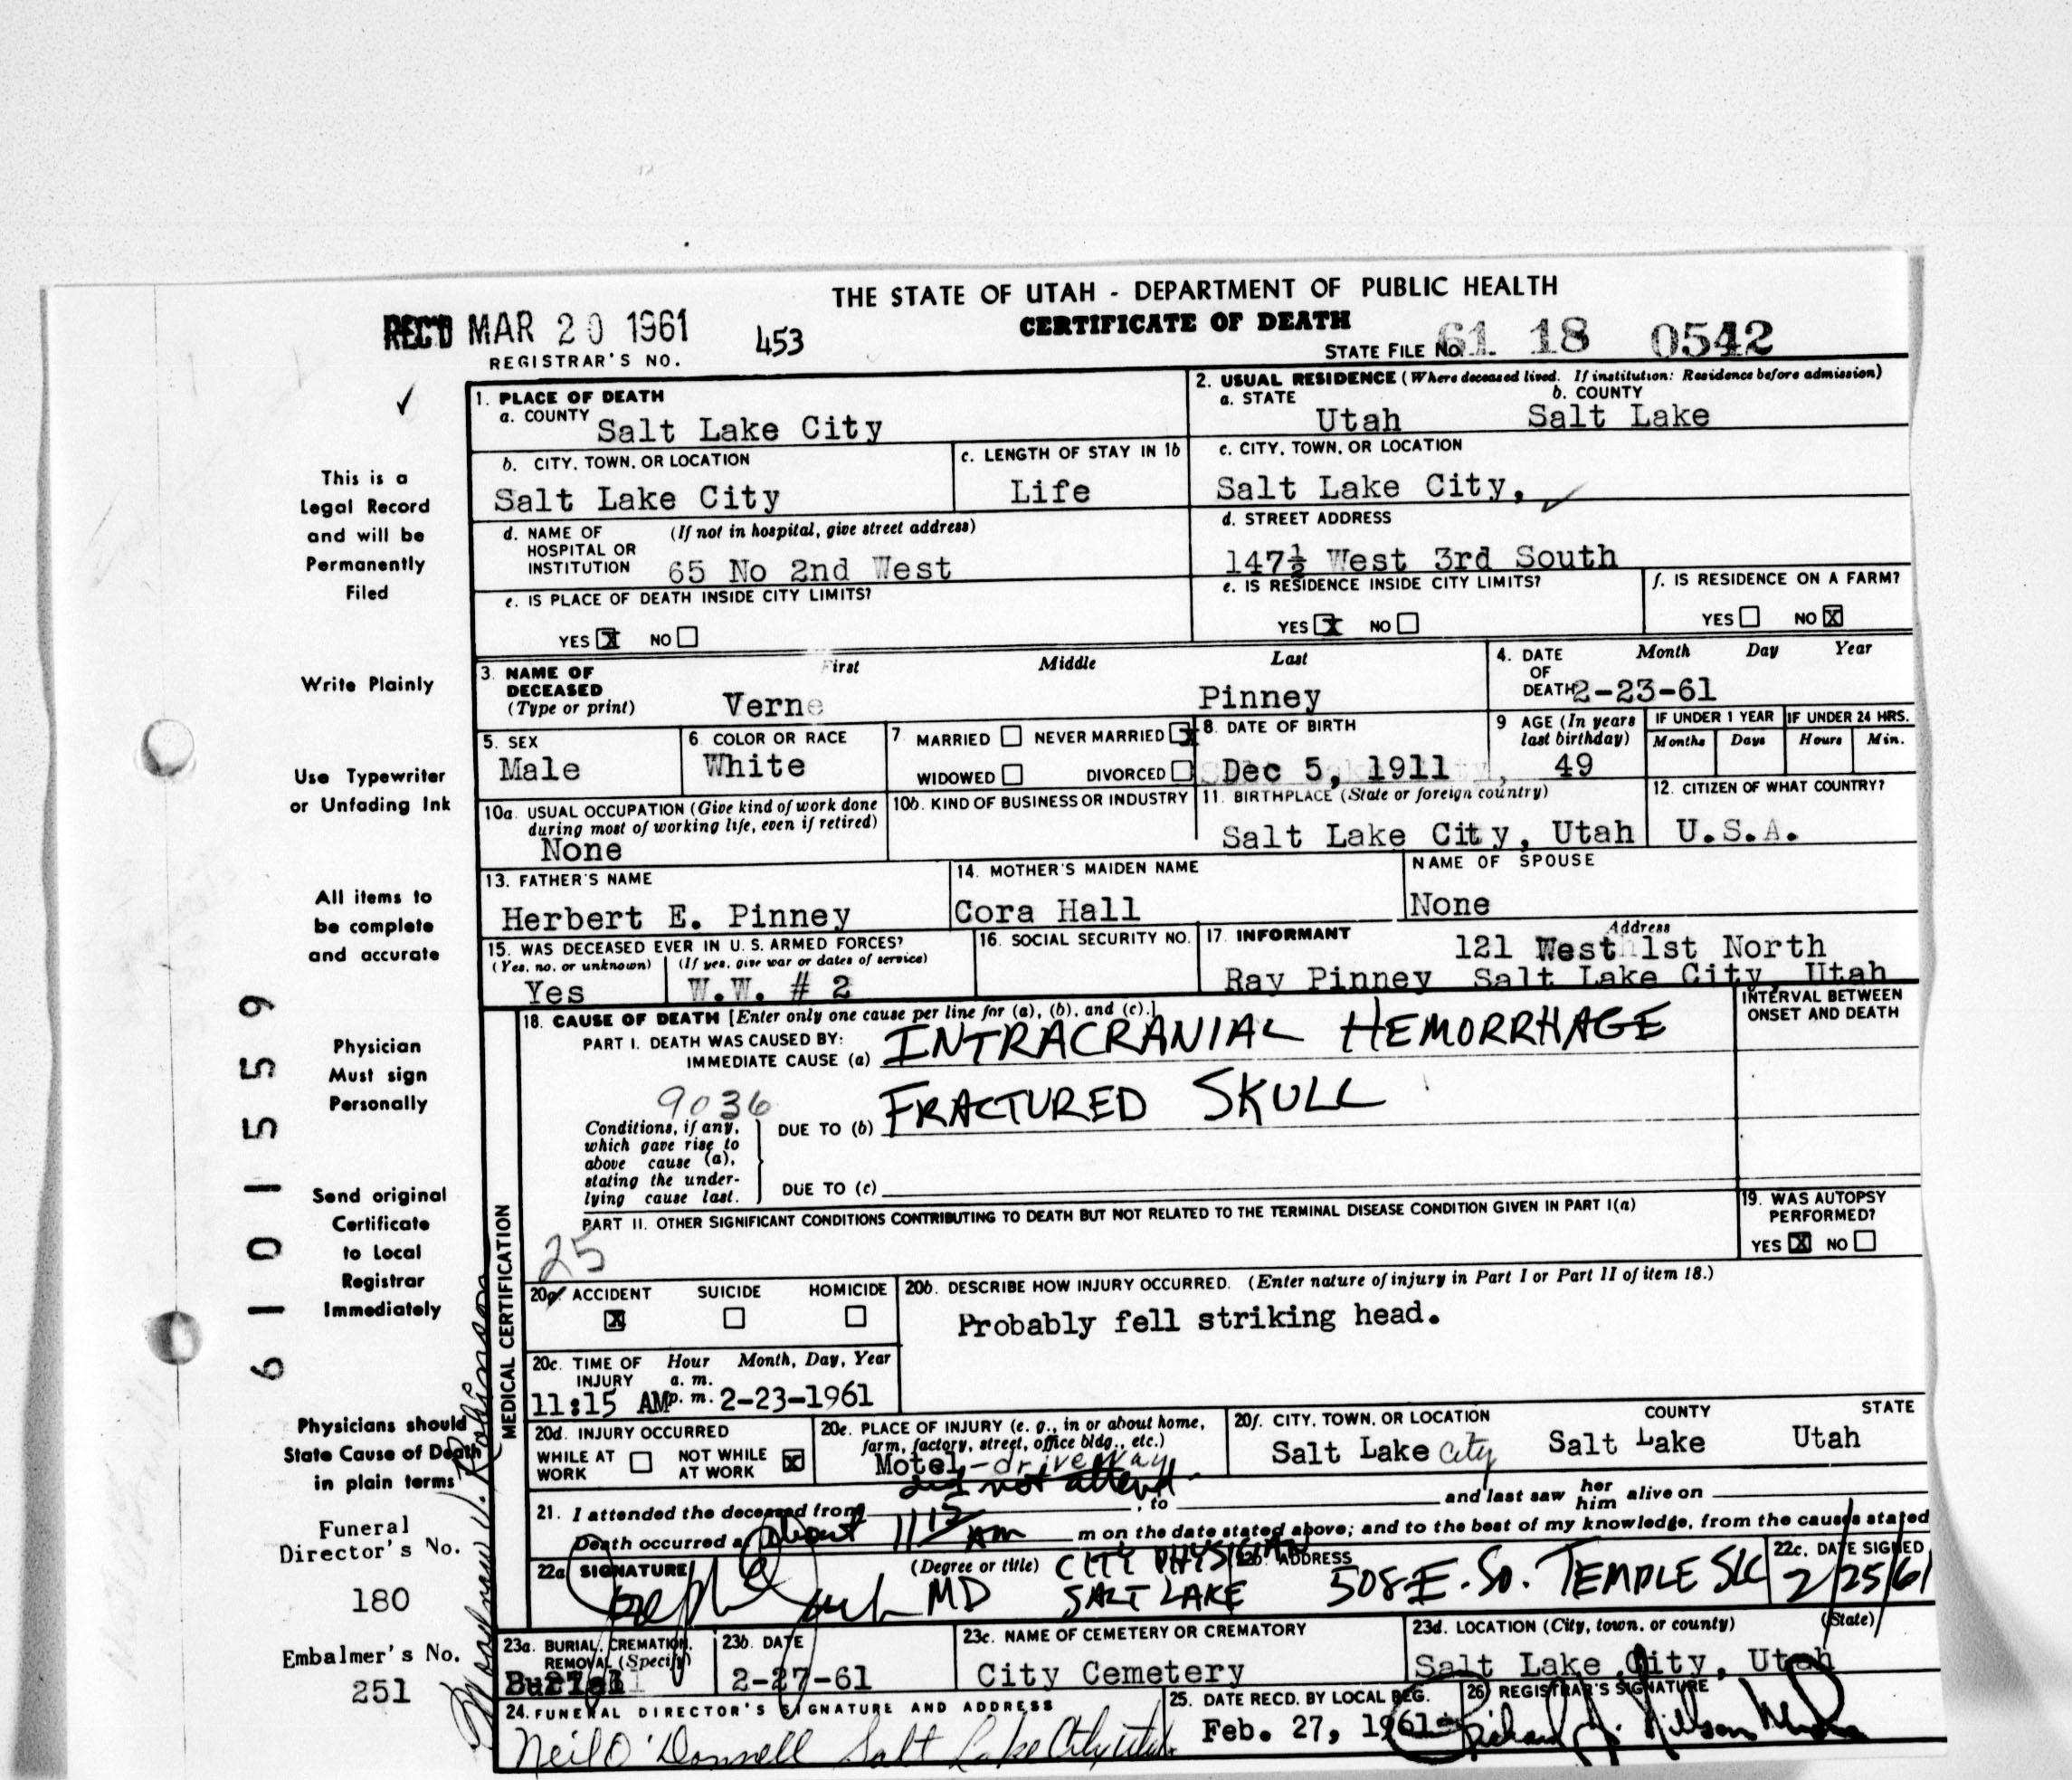 THE STATE OF UTAH - DEPARTMENT OF PUBLIC HEALTH
CERTIFICATE OF DEATH
REC'D MAR 20 1961
REGISTRAR'S NO. 453
STATE FILE No. 61 18 0542
This is a
Legal Record
and will be
Permanently
Filed
Write Plainly
Use Typewriter
or Unfading Ink
All items to
be complete
and accurate
Physician
Must sign
Personally
Send original
Certificate
to Local
Registrar
Immediately
Physicians should
State Cause of Death
in plain terms
Funeral
Director's No.
180
Embalmer's No.
251
6101559
1. PLACE OF DEATH
a. COUNTY Salt Lake City
2. USUAL RESIDENCE (Where deceased lived. If institution: Residence before admission)
a. STATE Utah
b. COUNTY Salt Lake
b. CITY, TOWN, OR LOCATION
Salt Lake City
c. LENGTH OF STAY IN 1b
Life
c. CITY, TOWN, OR LOCATION
Salt Lake City,
d. NAME OF HOSPITAL OR INSTITUTION (If not in hospital, give street address)
65 No 2nd West
d. STREET ADDRESS
147½ West 3rd South
e. IS PLACE OF DEATH INSIDE CITY LIMITS?
YES X NO
e. IS RESIDENCE INSIDE CITY LIMITS?
YES X NO
f. IS RESIDENCE ON A FARM?
YES NO X
3. NAME OF DECEASED (Type or print)
First Middle Last
Verne Pinney
4. DATE OF DEATH Month Day Year
2-23-61
5. SEX
Male
6. COLOR OR RACE
White
7. MARRIED NEVER MARRIED X
WIDOWED DIVORCED
8. DATE OF BIRTH
Dec 5, 1911
9 AGE (In years last birthday)
49
IF UNDER 1 YEAR
Months Days
IF UNDER 24 HRS.
Hours Min.
10a. USUAL OCCUPATION (Give kind of work done during most of working life, even if retired)
None
10b. KIND OF BUSINESS OR INDUSTRY
11. BIRTHPLACE (State or foreign country)
Salt Lake City, Utah
12. CITIZEN OF WHAT COUNTRY?
U.S.A.
13. FATHER'S NAME
Herbert E. Pinney
14. MOTHER'S MAIDEN NAME
Cora Hall
NAME OF SPOUSE
None
15. WAS DECEASED EVER IN U. S. ARMED FORCES?
(Yes, no, or unknown) (If yes, give war or dates of service)
Yes W.W. # 2
16. SOCIAL SECURITY NO.
17. INFORMANT Address
121 West 1st North
Ray Pinney Salt Lake City, Utah
MEDICAL CERTIFICATION
18. CAUSE OF DEATH [Enter only one cause per line for (a), (b), and (c).]
PART I. DEATH WAS CAUSED BY:
IMMEDIATE CAUSE (a) INTRACRANIAL HEMORRHAGE
INTERVAL BETWEEN ONSET AND DEATH
9036
Conditions, if any, which gave rise to above cause (a), stating the underlying cause last.
DUE TO (b) FRACTURED SKULL
DUE TO (c)
PART II. OTHER SIGNIFICANT CONDITIONS CONTRIBUTING TO DEATH BUT NOT RELATED TO THE TERMINAL DISEASE CONDITION GIVEN IN PART I(a)
25
19. WAS AUTOPSY PERFORMED?
YES X NO
20a. ACCIDENT SUICIDE HOMICIDE
X
20b. DESCRIBE HOW INJURY OCCURRED. (Enter nature of injury in Part I or Part II of item 18.)
Probably fell striking head.
20c. TIME OF INJURY Hour Month, Day, Year
a. m.
11:15 AM p. m. 2-23-1961
20d. INJURY OCCURRED
WHILE AT WORK NOT WHILE AT WORK X
20e. PLACE OF INJURY (e. g., in or about home, farm, factory, street, office bldg., etc.)
Motel - driveway
20f. CITY, TOWN, OR LOCATION COUNTY STATE
Salt Lake City Salt Lake Utah
did not attend
21. I attended the deceased from , to and last saw her him alive on
Death occurred at About 11 15 AM m on the date stated above; and to the best of my knowledge, from the causes stated
22a. SIGNATURE (Degree or title)
MD CITY PHYSICIAN SALT LAKE
22b. ADDRESS
508 E. So. TEMPLE SLC
22c. DATE SIGNED
2/25/61
23a. BURIAL, CREMATION, REMOVAL (Specify)
Burial
23b. DATE
2-27-61
23c. NAME OF CEMETERY OR CREMATORY
City Cemetery
23d. LOCATION (City, town, or county) (State)
Salt Lake City, Utah
24. FUNERAL DIRECTOR'S SIGNATURE AND ADDRESS
Neil O'Donnell Salt Lake City Utah
25. DATE RECD. BY LOCAL REG.
Feb. 27, 1961
26 REGISTRAR'S SIGNATURE